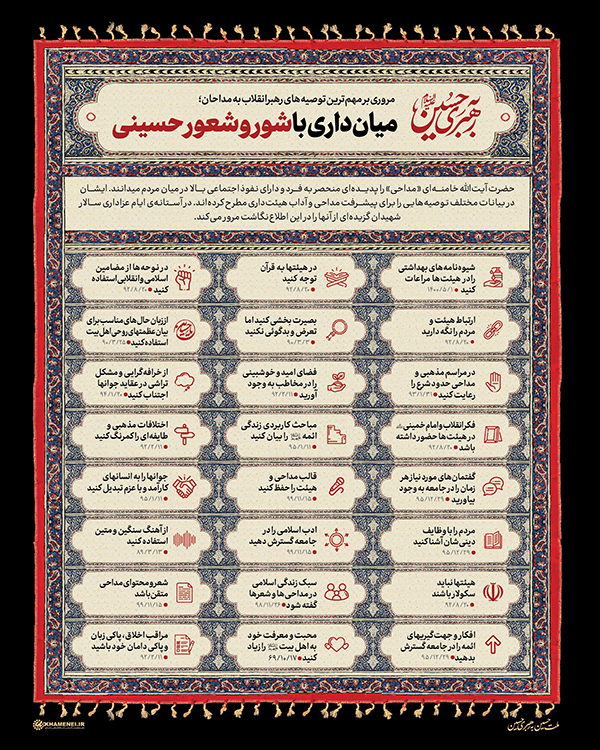 به رهبری حسین
مروری بر مهم‌ترین توصیه‌های رهبر انقلاب به مداحان؛
میان‌داری با شور و شعور حسینی
حضرت آیت‌الله خامنه‌ای «مداحی» را پدیده‌ای منحصر به فرد و دارای نفوذ اجتماعی بالا در میان مردم میدانند. ایشان
در بیانات مختلف توصیه‌هایی را برای پیشرفت مداحی و آداب هیئت‌داری مطرح کرده‌اند. در آستانه‌ی ایام عزاداری سالار
شهیدان گزیده‌ای از آنها را در این اطلاع‌نگاشت مرور می‌کند.
شیوه‌نامه‌های بهداشتی
را در هیئت‌ها مراعات
کنید ● ۱۴۰۰/۵/۱
در هیئتها به قرآن
توجه کنید
● ۹۲/۸/۲۰
در نوحه‌ها از مضامین
اسلامی و انقلابی استفاده
کنید ● ۹۲/۸/۲۰
ارتباط هیئت و
مردم را نگه دارید
● ۹۲/۸/۲۰
بصیرت بخشی کنید اما
تعرض و بدگوئی نکنید
● ۹۰/۳/۳
از زبان حال‌های مناسب برای
بیان عظمتهای روحی اهل بیت
استفاده کنید ● ۹۰/۳/۲۵
در مراسم مذهبی و
مداحی حدود شرع را
رعایت کنید ● ۹۳/۱/۳۱
فضای امید و خوشبینی
را در مخاطب به وجود
آورید ● ۹۲/۲/۱۱
از خرافه‌گرایی و مشکل
تراشی در عقاید جوانها
اجتناب کنید ● ۹۴/۱/۲۰
فکر انقلاب و امام خمینی
در هیئت‌ها حضور داشته
باشد ● ۹۲/۸/۲۰
مباحث کاربردی زندگی
ائمه را بیان کنید
● ۹۵/۱/۱۱
اختلافات مذهبی و
طایفه‌ای را کمرنگ کنید
● ۹۲/۲/۱۱
گفتمان‌های مورد نیاز هر
زمان را در جامعه به وجود
بیاورید ● ۹۵/۱۲/۲۹
قالب مداحی و
هیئت را حفظ کنید
● ۹۹/۱۱/۱۵
جوانها را به انسانهای
کارآمد و با عزم تبدیل کنید
● ۹۵/۱/۱۱
مردم را با وظایف
دینی‌شان آشنا کنید
● ۹۵/۱۲/۲۹
ادب اسلامی را در
جامعه گسترش دهید
● ۹۹/۱۱/۱۵
از آهنگ سنگین و متین
استفاده کنید
● ۸۹/۳/۱۳
هیئتها نباید
سکولار باشند
● ۹۲/۸/۲۰
سبک زندگی اسلامی
در مداحی‌ها و شعرها
گفته شود ● ۹۸/۱۱/۲۶
شعر و محتوای مداحی
متقن باشد
● ۹۹/۱۱/۱۵
افکار و جهت‌گیریهای
ائمه را در جامعه گسترش
بدهید ● ۹۵/۱۲/۲۹
محبت و معرفت خود
به اهل بیت را زیاد
کنید ● ۶۹/۱۰/۱۷
مراقب اخلاق، پاکی زبان
و پاکی دامان خود باشید
● ۹۲/۲/۱۱
ملت حسین به رهبری حسین
KHAMENEI.IR